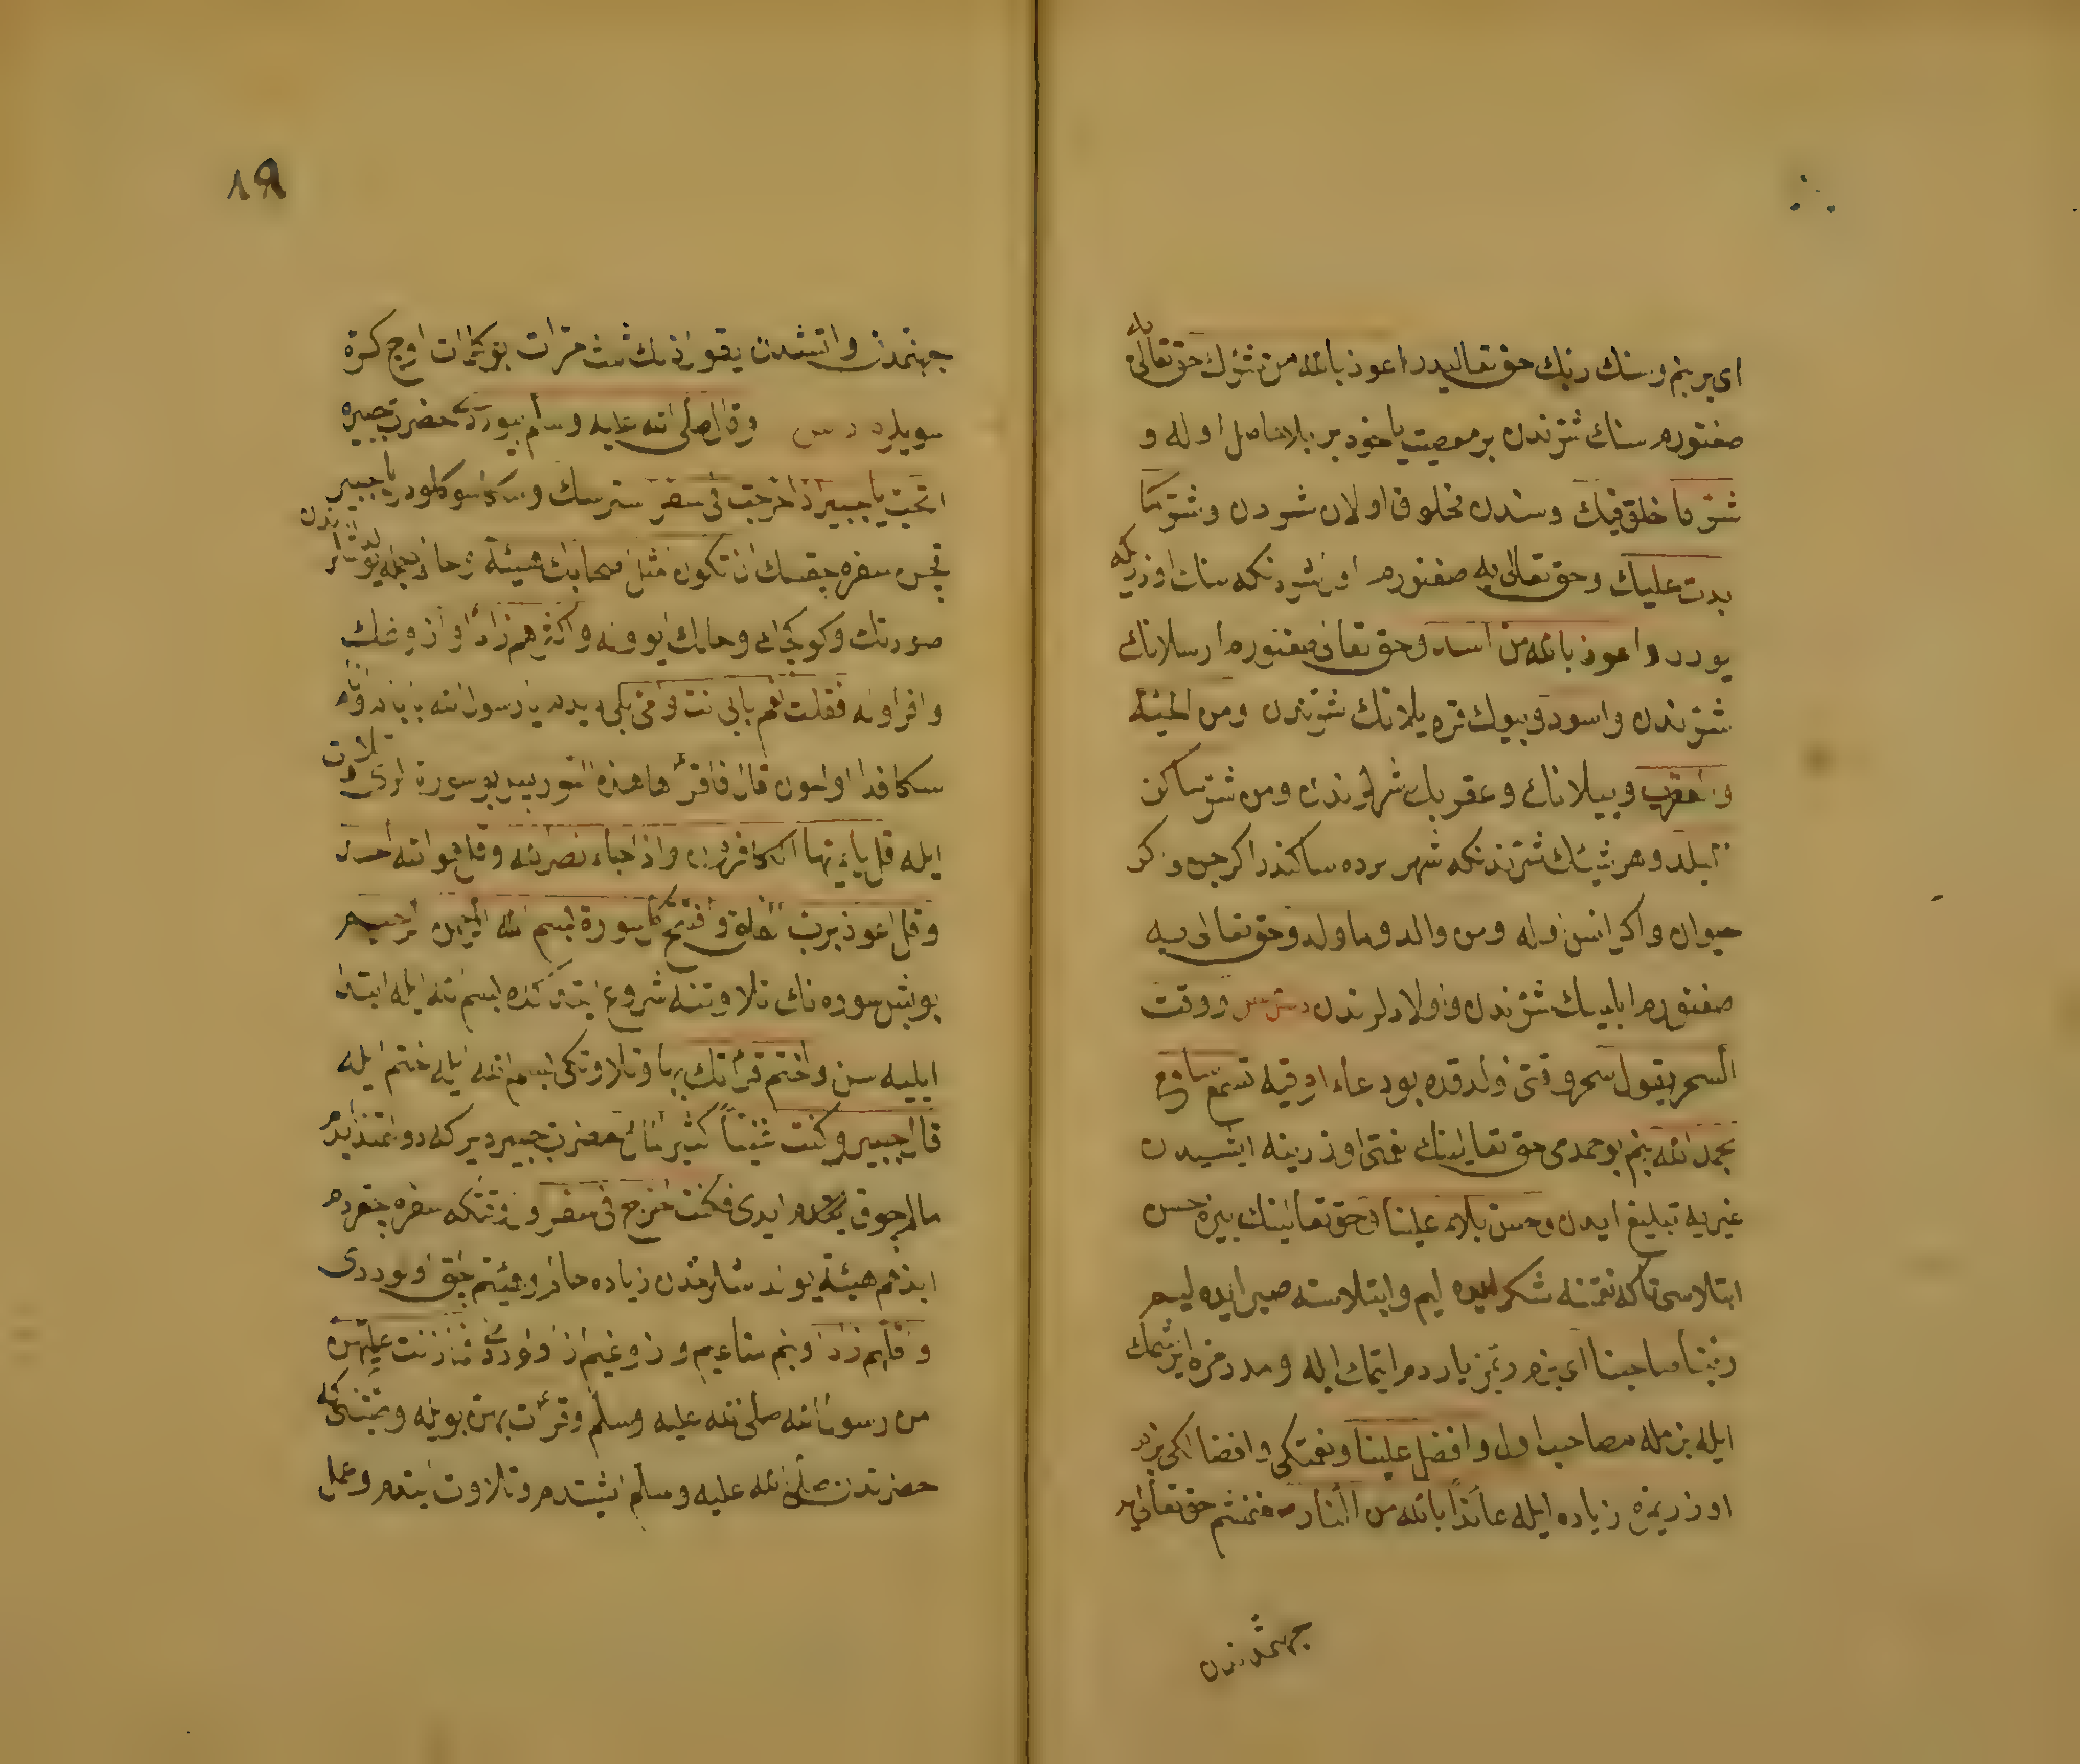 ای یر بنم و سنك ربك حق تعالیدر اعوذ بالله من شرك حق تعالی یه
صغنورم سنك شرندن بر معصیت یاخود بر بلا حاصل اوله و
شر ما خلق فیك و سندن مخلوق اولان شردن و شر ما
یدب علیك و حق تعالی یه صغنورم اول شیدنکه سنك اوزریکه
یورر و اعوذ بالله من اسد و حق تعالی صغنورم ارسلانك
شرندن و اسود و بیوك قره یلانك شرندن ومن الحیة
و العقرب و ییلانك و عقربك شرلرندن ومن شر ساکن
البلد و هر شیئك شرندنکه شهر یرده ساکندر اکر جن و کر
حیوان و اکر انس اوله ومن والد وما ولد و حق تعالی یه
صغنورم ابلیسك شرندن و اولادلرندن ووقت
السحر یقول سحر وقتی اولدقده بو دعاء اوقیه سمع سامع
بحمد الله بنم بو حمدمی حق تعالینك نعمتی اوزرینه ایشیدن
غیریه تبلیغ ایدن وحسن بلائه علینا و حق تعالینك بیزه حسن
ابتلاسی تاکه نعمتنه شکر ایده لیم و ابتلاسنه صبر ایده لیم
ربنا صاحبنا ای بزم ربمز یاردم ایتمك ایله و مدد مزه ایرشمك
ایله بزمله مصاحب اول وافضل علینا و نعمتکی و افضالکی بزم
اوزریمزه زیاده ایله عائذاً بالله من النار صغنمشم حق تعالی یه
جهنمدن
١٩
جهنمدن و اتشدن یقول ذلك ثلث مرات بو کلمات اوچ کره
سویلر وقال صلی الله علیه وسلم بیوردی حضرت جبیره
اتحب یا جبیر اذا خرجت فی سفر سترسك و سکا سوکلودر یا جبیر
قچن سفره چقسك ان تکون مثل اصحابك هیئة
صورتك و کورکك و حالك ایو اوله واکثرهم زاداً و ازوغك
وافر اوله فقلت نعم بابی انت وامی بلی دیدم یا رسول الله بابام و انام
سکا فدا اولسون قال فاقرأ هذه السور الخمس بو سورلری تلاوت
ایله قل یا ایها الکافرون و اذا جاء نصر الله و قل هو الله احد
وقل اعوذ برب الفلق وافتتح کل سورة بسم الله الرحمن الرحیم
بو بش سوره نك تلاوتنه شروع ایتدکده بسم الله ایله ابتدا
ایلیه سن واختم قرأتك بها و تلاوتکی بسم الله ایله ختم ایله
قال جبیر و کنت غنیاً کثیر المال حضرت جبیر دیر که دولتمند ایدم
مالم چوق ایدی فکنت اخرج فی سفر و وقتکه سفره چقردم
ابذهم هیئة یولداشلرمدن زیاده حالم و هیئتم یوق اولوردی
واقلهم زاداً و بنم متاعیم و ازوغیم از اولوردی فما زلت علمتهن
من رسول الله صلی الله علیه وسلم وقرأت بهن بویله و تعلیم
حضرتدن صلی الله علیه وسلم ایشتدم و تلاوت ایتدم و عمل